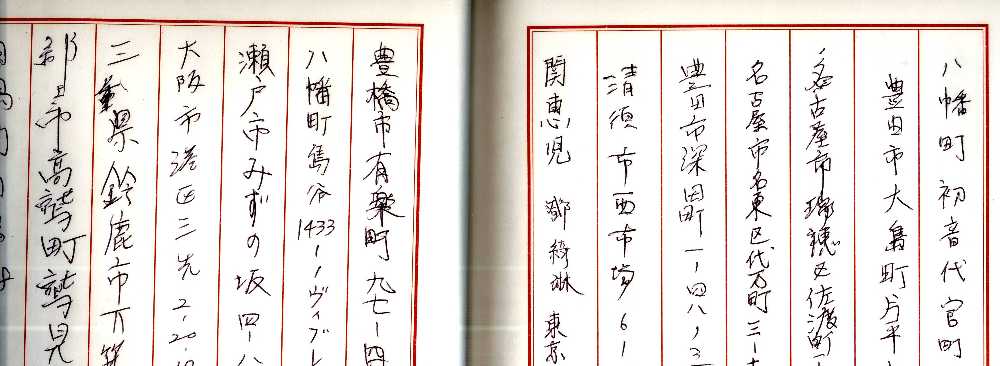 八幡町初音代官町
豊田市大島町片平
名古屋市瑞穂区佐渡町
名古屋市名東区代万町三ー十
豊田市深田町一ー四八ー3
清須市西市場6ー
関恵児 鄧綺琳 東京
豊橋市有楽町九七ー四
八幡町島谷1433ー1ヴィブレ
瀬戸市みずの坂四ー八
大阪市港区三先2-20-1
三重県鈴鹿市下箕
郡上市高鷲町鷲見